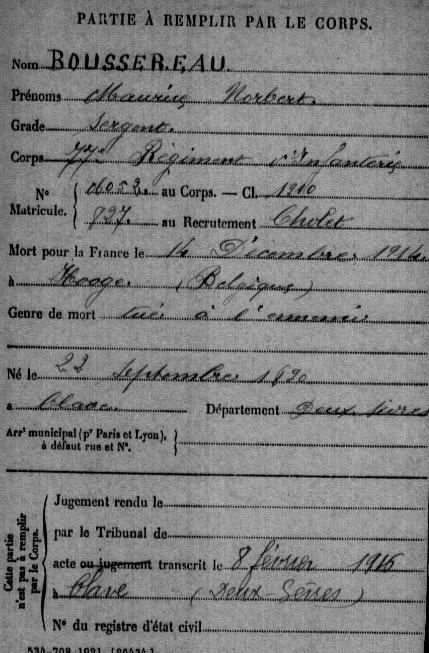 PARTIE À REMPLIR PAR LE CORPS.
Nom BOUSSEREAU
Prénoms Maurice Norbert.
Grade Sergent.
Corps 77e Régiment d'Infanterie
No Matricule. { 06052. au Corps. — Cl. 1910
727. au Recrutement Cholet
Mort pour la France le 14 Décembre 1914.
à Hooge. (Belgique)
Genre de mort tué à l'ennemi
Né le 22 septembre 1890
à Clave. Département Deux Sèvres
Arrt municipal (pr Paris et Lyon), à défaut rue et No. }
Cette partie n'est pas à remplir par le Corps. {
Jugement rendu le
par le Tribunal de
acte ou jugement transcrit le 8 février 1916
à Clave (Deux-Sèvres)
No du registre d'état civil
534-708-1921. [26434.]